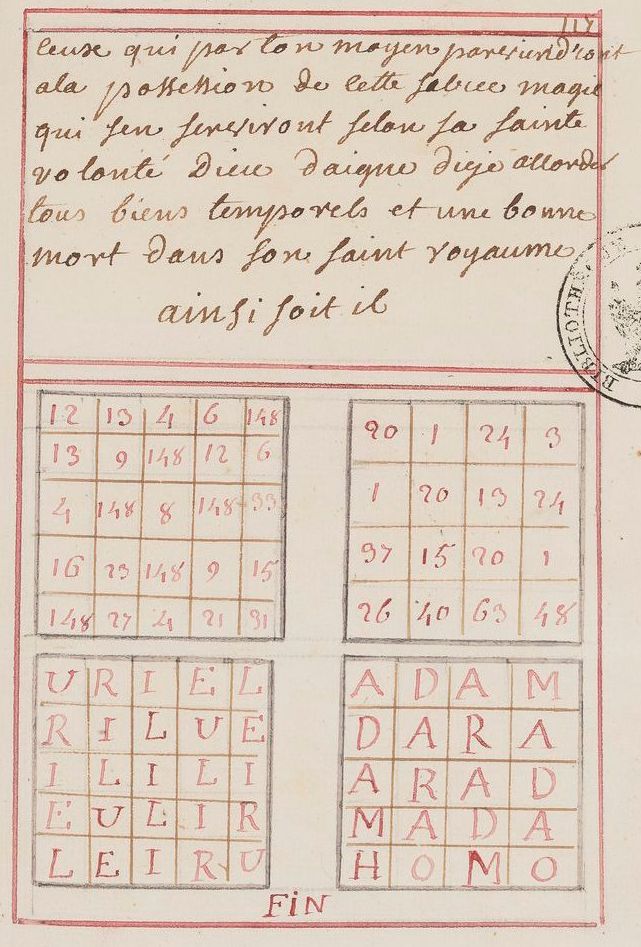 117
ceux qui par ton moyen parviendront
a la possession de cette sacree magie
qui sen serviront selon sa sainte
volonté Dieu daigne accorder
tous biens temporels et une bonne
mort dans son saint royaume
ainsi soit il
BIBLIOTHEQUE
12 13 4 6 148
13 9 148 12 6
4 148 8 148 33
16 23 148 9 15
148 27 4 21 31
20 1 24 3
1 20 13 24
37 15 20 1
26 40 63 48
U R I E L
R I L U E
I L I L I
E U L I R
L E I R U
A D A M
D A R A
A R A D
M A D A
H O M O
FIN